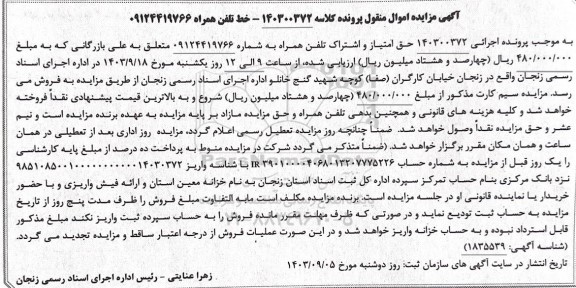 آگهی مزایده اموال منقول پرونده کلاسه ۱۴۰۳۰۰۳۷۲ – خط تلفن همراه ۰۹۱۲۴۴۱۹۷۶۶
به موجب پرونده اجرائی ۱۴۰۳۰۰۳۷۲ حق امتیاز و اشتراک تلفن همراه به شماره ۰۹۱۲۴۴۱۹۷۶۶ متعلق به علی بازرگانی که به مبلغ
۴۸۰/۰۰۰/۰۰۰ ریال (چهارصد و هشتاد میلیون ریال) ارزیابی شده، از ساعت ۹ الی ۱۲ روز یکشنبه مورخ ۱۴۰۳/۹/۱۸ در اداره اجرای اسناد
رسمی زنجان واقع در زنجان خیابان کارگران (صفا) کوچه شهید گنج خانلو اداره اجرای اسناد رسمی زنجان از طریق مزایده به فروش می
رسد. مزایده سیم کارت مذکور از مبلغ ۴۸۰/۰۰۰/۰۰۰ (چهارصد و هشتاد میلیون ریال) شروع و به بالاترین قیمت پیشنهادی نقداً فروخته
خواهد شد و کلیه هزینه های قانونی و همچنین بدهی تلفن همراه و حق مزایده مازاد بر پایه مزایده به عهده برنده مزایده است و نیم
عشر و حق مزایده نقداً وصول خواهد شد. ضمناً چنانچه روز مزایده تعطیل رسمی اعلام گردد، مزایده روز اداری بعد از تعطیلی در همان
ساعت و همان مکان مقرر برگزار خواهد شد. (ضمناً متذکر می گردد شرکت در مزایده منوط به پرداخت ده درصد از مبلغ پایه کارشناسی
را یک روز قبل از مزایده به شماره حساب
نزد بانک مرکزی بنام حساب تمرکز سپرده اداره کل ثبت اسناد استان زنجان به نام خزانه معین استان و ارائه فیش واریزی و با حضور
خریدار یا نماینده قانونی او در جلسه مزایده است. برنده مزایده مکلف است مابه التفاوت مبلغ فروش را ظرف مدت پنج روز از تاریخ
مزایده به حساب ثبت تودیع نماید و در صورتی که ظرف مهلت مقرر مانده فروش را به حساب سپرده ثبت واریز نکند مبلغ مذکور
قابل استرداد نبوده و به حساب خزانه واریز خواهد شد و در این صورت عملیات فروش از درجه اعتبار ساقط و مزایده تجدید می گردد.
(شناسه آگهی: ۱۸۳۵۵۳۹)
تاریخ انتشار در سایت آگهی های سازمان ثبت: روز دوشنبه مورخ ۱۴۰۳/۰۹/۰۵
زهرا عنایتی – رئیس اداره اجرای اسناد رسمی زنجان